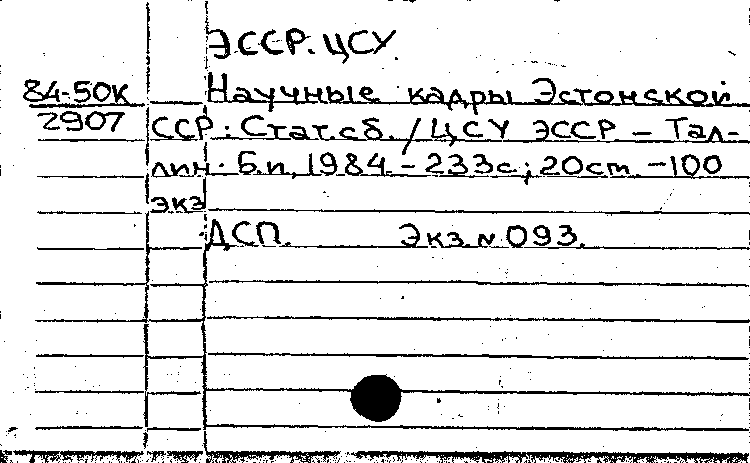 ЭССР. ЦСУ.
84-50К Научные кадры Эстонской
2907 ССР: Стат.сб. / ЦСУ ЭССР – Тал-
лин: Б.и, 1984. – 233с.; 20см. – 100
экз
ДСП. Экз. N 093.